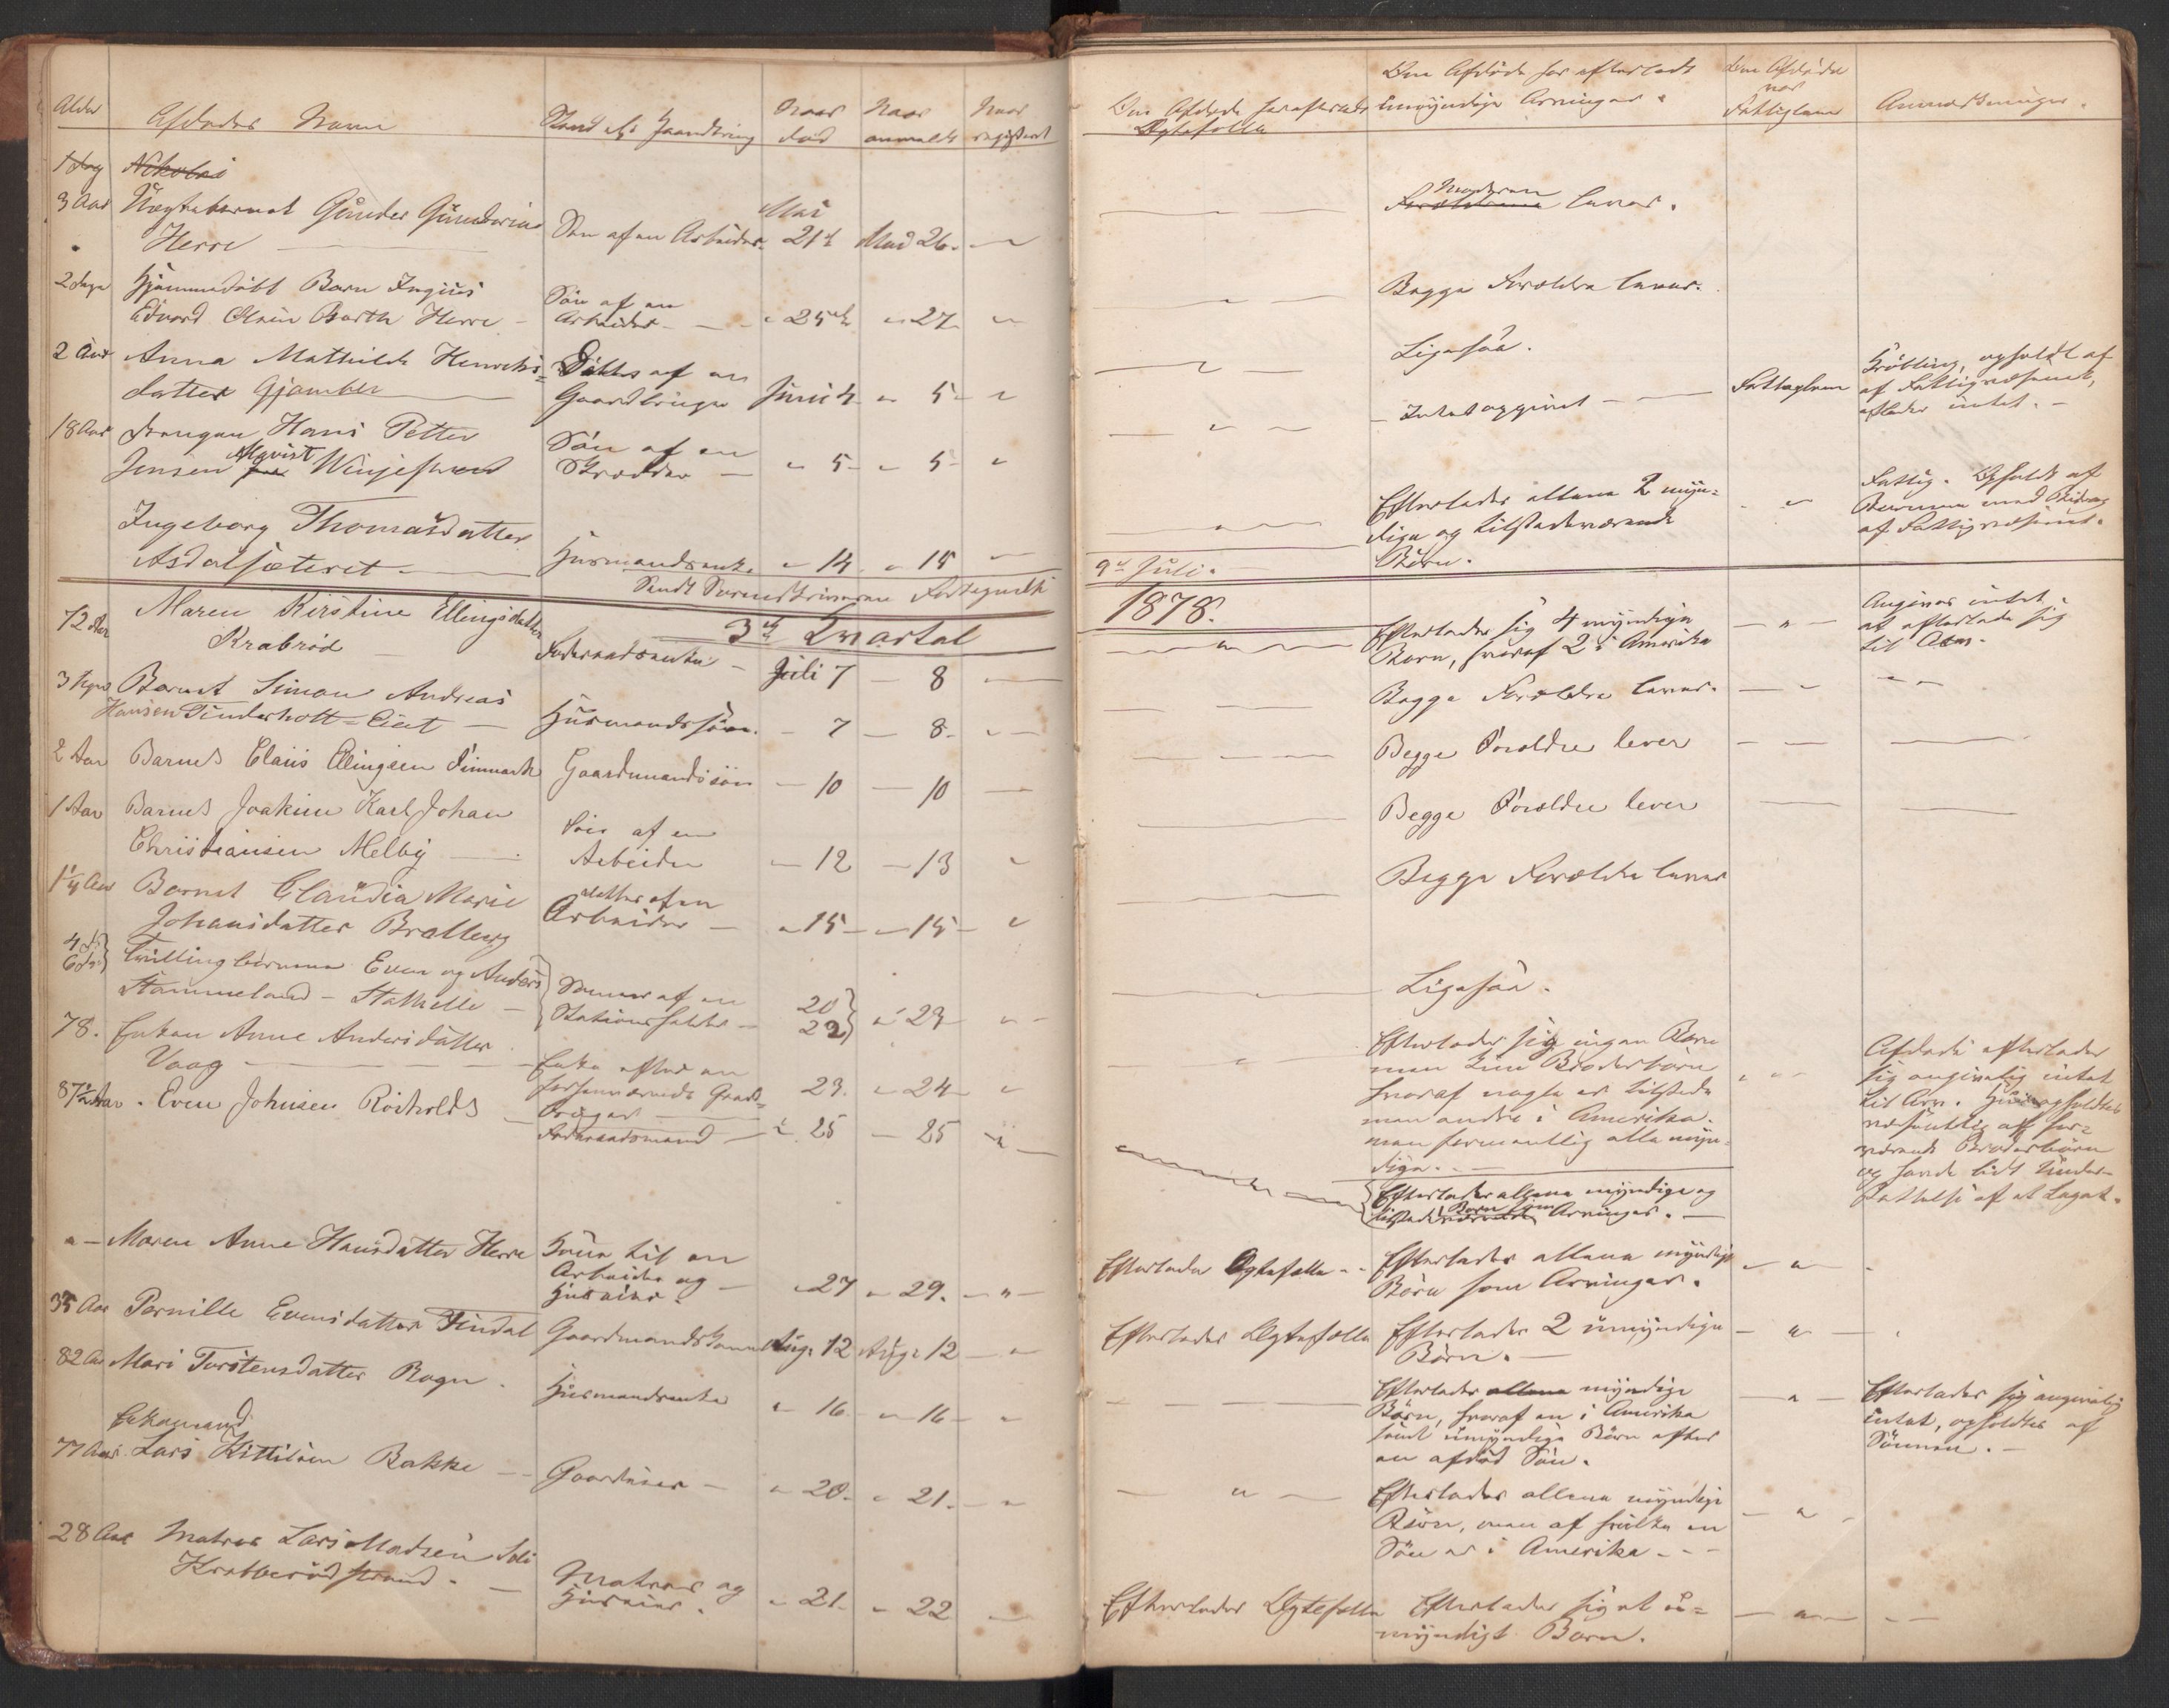 Alder
Afdødes Navn
Stand eller Haandtering
Naar død
Naar anmeldt
Naar registreret
1 dag Nikolai
3 Aar Uægtebarnet Gunder Gundersen
Herre
Søn af en Arbeider
Mai
21de Mai 26
2 dage Hjemmedøbt Barn Ingius
Edvard Olsen Barth Herre
Søn af en
Arbeider
25de 27
2 Aar Anna Mathilde Henriks=
datter Gjømber
Datter af en
Gaardbruger Juni 4 5
18 Aar Drengen Hans Petter
Jensen Alqvist Winjestrand
Søn af en
Skrædder 5 5
Ingeborg Thomasdatter
Asdalsæteret
Husmandsenke 14 15
Sendt Sorenskriveren Fortegnelse
3de Qvartal
72 Aar Maren Kirstine Ellingsdatter
Krabrød
Føderaadsenke Juli 7 8
Barnet Simon Andreas
Hansen Tinderholt=Eiet
Husmandssøn 7 8
2 Aar Barnet Claus Ellingsen Finmark
Gaardmandssøn 10 10
1 Aar Barnet Joakim Karl Johan
Christiansen Melby
Søn af en
Arbeider 12 13
1 1/4 Aar Barnet Claudia Marie
Johansdatter Bratberg
Datter af en
Arbeider 15 15
Tvillingbørnene Even og Anders
Stammeland - Stathelle
Sønner af en
20
22 23
78. Enken Anne Andersdatter
Vaag
Enke efter en
forhenværende Gaard=
bruger 23. 24
87 1/2 Aar. Even Johnsen Rösholdt
Føderaadsmand 25 25
Maren Anne Hansdatter Herre
Kone til en
Arbeider og
Huseier. 27 29.
35 Aar Pernille Evensdatter Findal
Gaardmandskone Aug. 12 Aug. 12
82 Aar Mari Torstensdatter Rogn
Husmandsenke 16 16
Enkemand
77 Aar Lars Kittilsen Bakke
Gaardeier 20. 21.
28 Aar Matros Lars Madsen
Krabberød strand.
Matros og
Huseier. 21. 22
Den Afdøde har efterladt
Ægtefælle
Den Afdøde har efterladt
umyndige Arvinger.
Den Afdøde
var
Fattiglem
Anmærkninger.
Moderen
Forældrene lever.
Begge Forældre lever.
Ligesaa.
Intet opgivet
Fattiglem
Krøbling, opholdt af
af Fattigvæsenet,
eflader intet. -
Efterlader allene 2 myn=
dige og tilstedeværende
Børn.
Fattig. Opholdt af
Børnene med Bidrag
af Fattigvæsenet.
9de Juli.
1878.
Efterlader sig 4 myndige
Børn, hvoraf 2 i Amerika
Angives intet
at efterlade sig
til Arv.
Begge Forældre lever.
Begge Forældre lever
Begge Forældre lever
Begge Forældre lever
Ligesaa.
Efterlader sig ingen Børn
men kun Broderbørn
hvoraf nogle er tilstede
men andre i Amerika.
men formentlig alle myn=
dige.
Afdøde efterlader
sig angivelig intet
til Arv. Hun opholdtes
væsentlig af sin
værende Broderbørn
og havde lidt Under=
støttelse af et Legat.
Efterlader allene myndige og
tilstedeværende Børn som Arvinger.
Efterlader Ægtefælle Efterlader allene myndige
Børn som Arvinger.
Efterlader Ægtefælle Efterlader 2 umyndige
Børn.
Efterlader allene myndige
Børn, hvoraf en i Amerika
samt umyndige Børn efter
en afdød Søn.
Efterlader sig angivelig
intet, opholdtes af
Sønnen.
Efterlader allene myndige
Børn, men af hvilke en
Søn er i Amerika
Efterlader Ægtefælle Efterlader sig et u=
myndigt Barn.